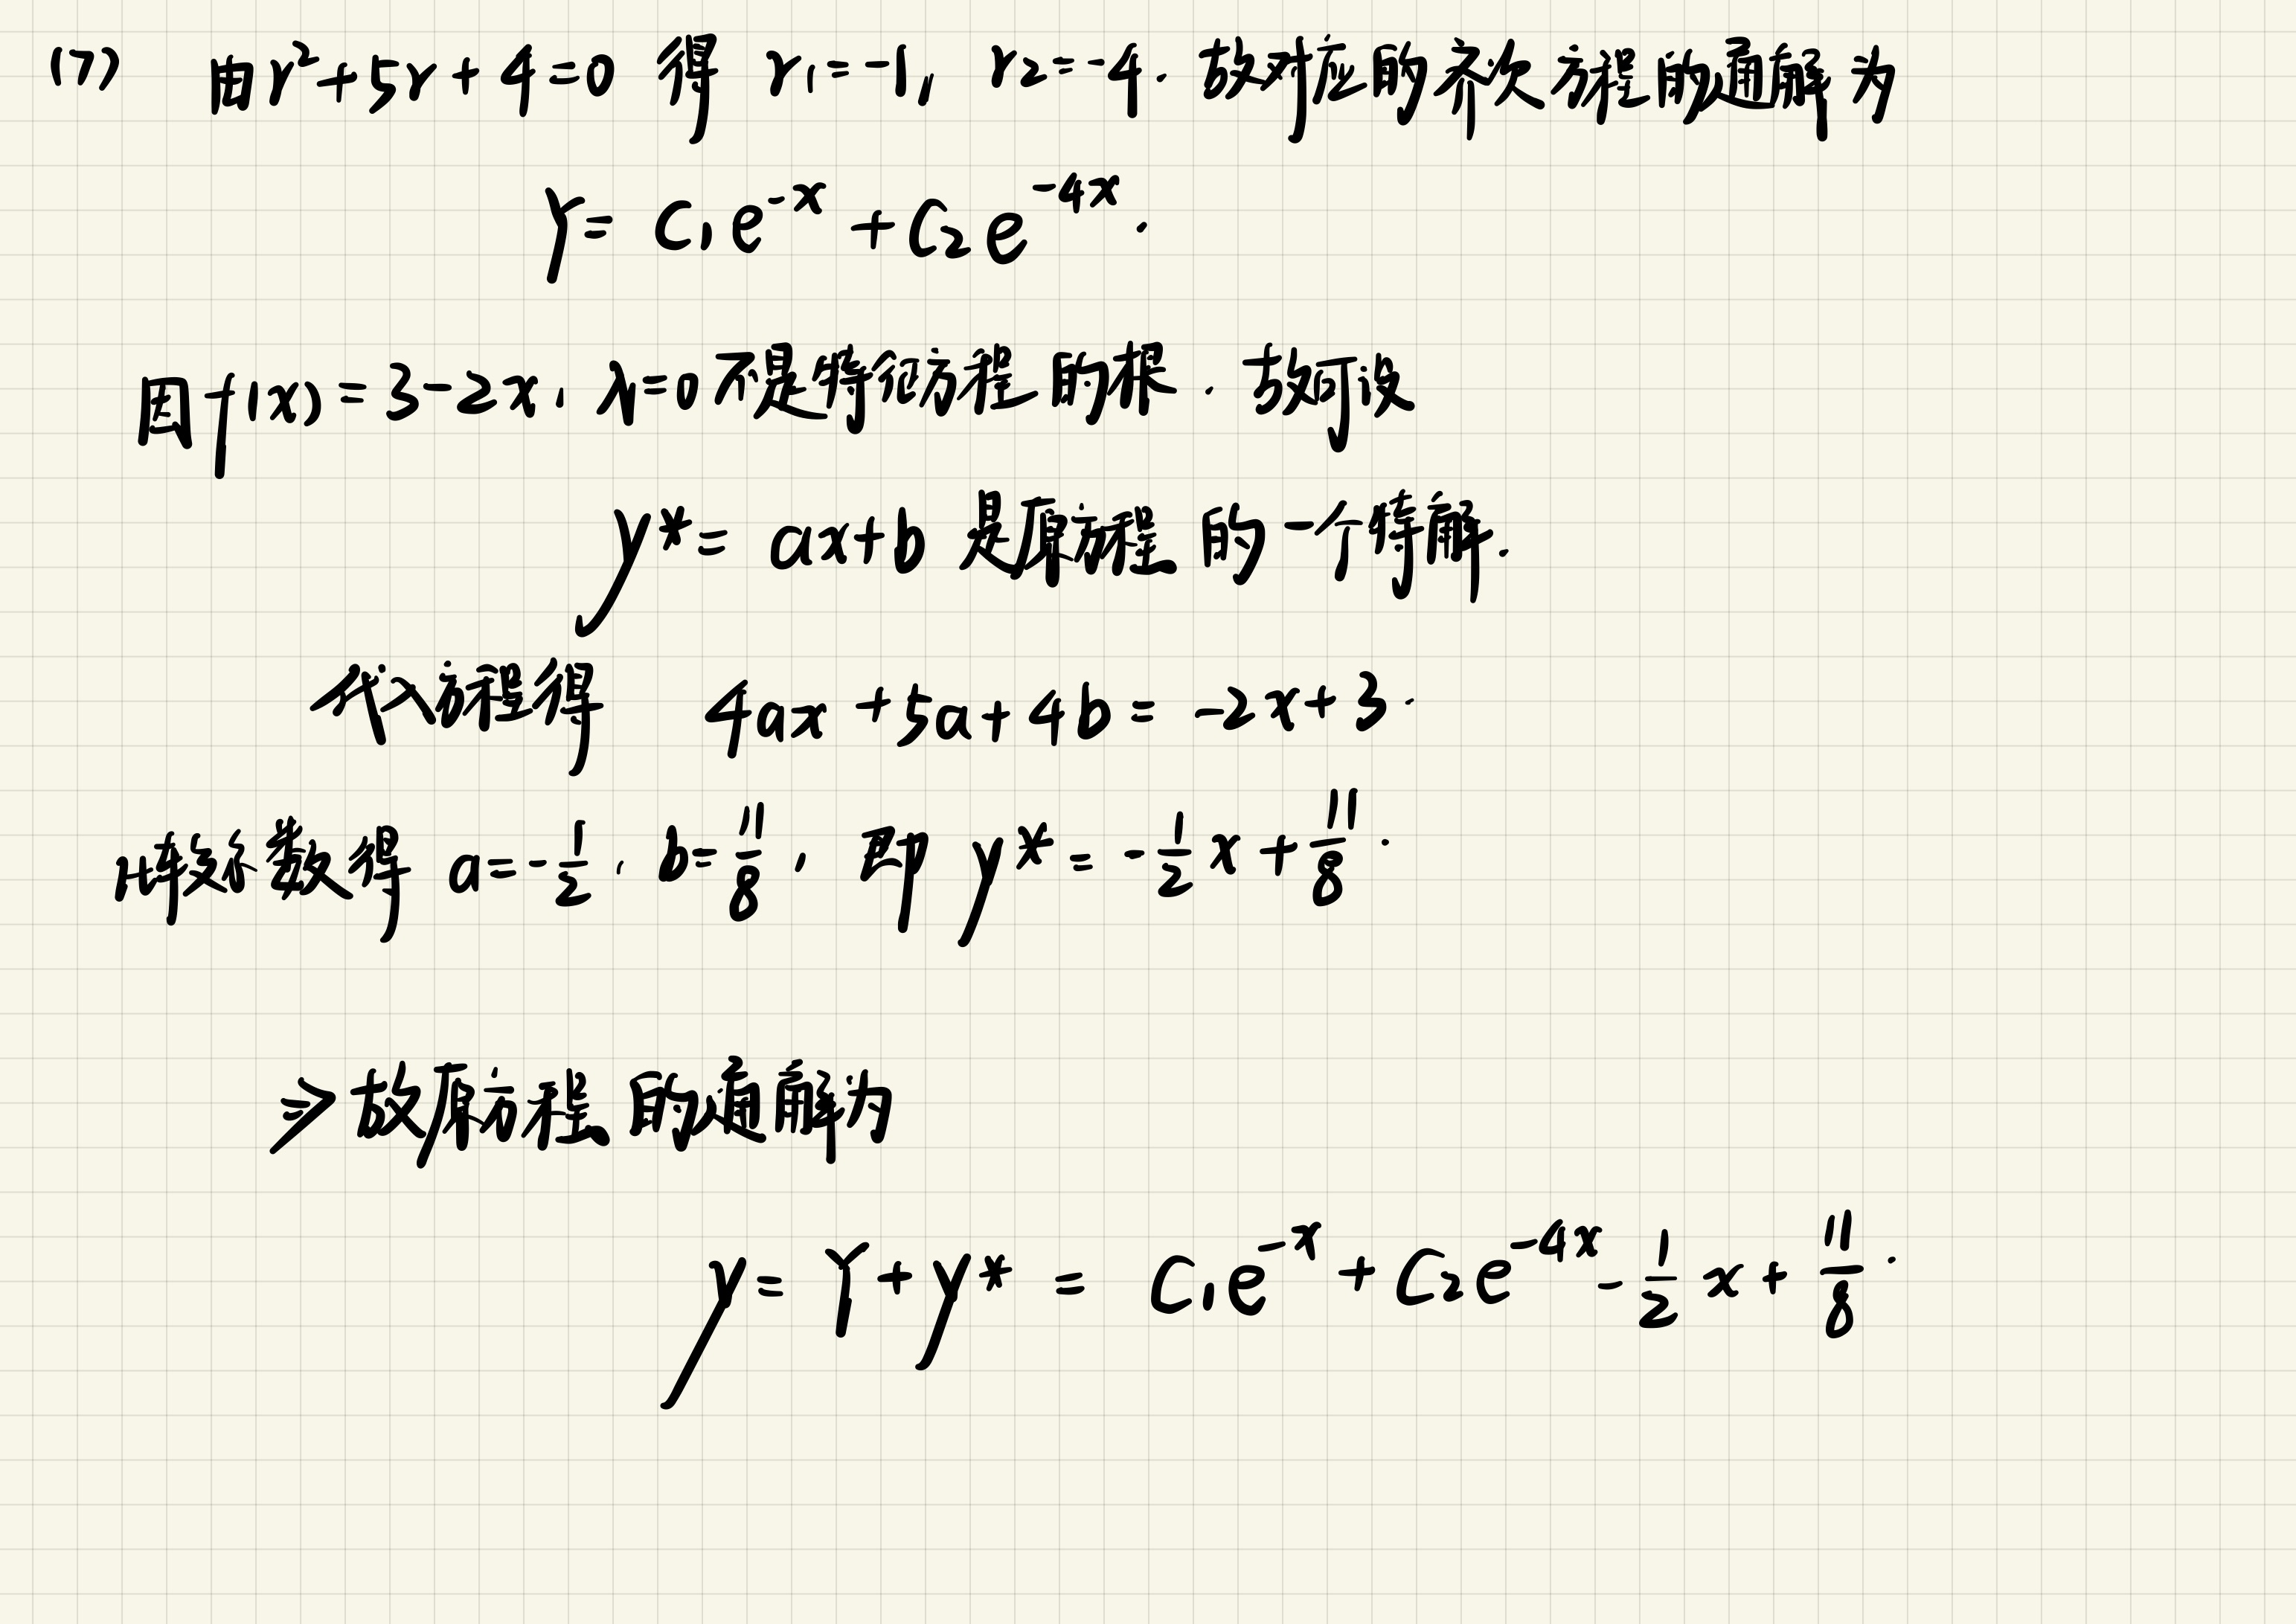 (7) 由r²+5r+4=0 得 r₁=-1, r₂=-4. 故对应的齐次方程的通解为
Y= C₁e⁻ˣ+C₂e⁻⁴ˣ.
因f(x)=3-2x, λ=0不是特征方程的根. 故可设
y*= ax+b 是原方程的一个特解.
代入方程得 4ax+5a+4b= -2x+3.
比较系数得 a=-1/2, b=11/8, 即 y*= -1/2 x+11/8.
⇒故原方程的通解为
y= Y+y* = C₁e⁻ˣ+C₂e⁻⁴ˣ-1/2 x+11/8.